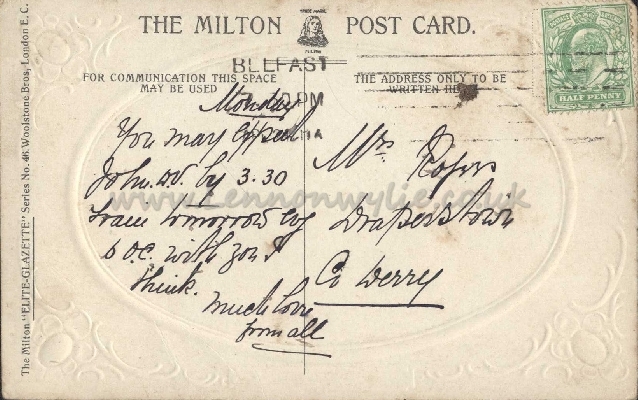 THE MILTON POST CARD.
TRADE MARK
BELFAST
PM
FOR COMMUNICATION THIS SPACE
MAY BE USED
THE ADDRESS ONLY TO BE
WRITTEN HERE
HALF PENNY
Monday
You may expect
John. W. by 3.30
train tomorrow
D.V. with you I
think.
Much love
from all
Mrs Rogers
Draperstown
Co Derry
www.lennonwylie.co.uk
The Milton "ELITE-GLAZETTE" Series No. 46 Woolstone Bros., London E. C.